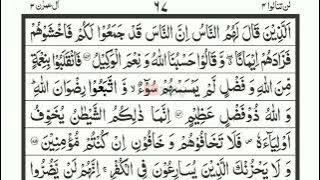 لن تنالوا ٤ ٦٧ آل عمرٰن ٣
اَلَّذِيْنَ قَالَ لَهُمُ النَّاسُ اِنَّ النَّاسَ قَدْ جَمَعُوْا لَكُمْ فَاخْشَوْهُمْ
فَزَادَهُمْ اِيْمَانًا وَّ قَالُوْا حَسْبُنَا اللّٰهُ وَ نِعْمَ الْوَكِيْلُ فَانْقَلَبُوْا بِنِعْمَةٍ
مِّنَ اللّٰهِ وَ فَضْلٍ لَّمْ يَمْسَسْهُمْ سُوْٓءٌ وَّ اتَّبَعُوْا رِضْوَانَ اللّٰهِ
وَ اللّٰهُ ذُوْ فَضْلٍ عَظِيْمٍ اِنَّمَا ذٰلِكُمُ الشَّيْطٰنُ يُخَوِّفُ
اَوْلِيَآءَهٗ فَلَا تَخَافُوْهُمْ وَ خَافُوْنِ اِنْ كُنْتُمْ مُّؤْمِنِيْنَ
وَ لَا يَحْزُنْكَ الَّذِيْنَ يُسَارِعُوْنَ فِي الْكُفْرِ اِنَّهُمْ لَنْ يَّضُرُّوا